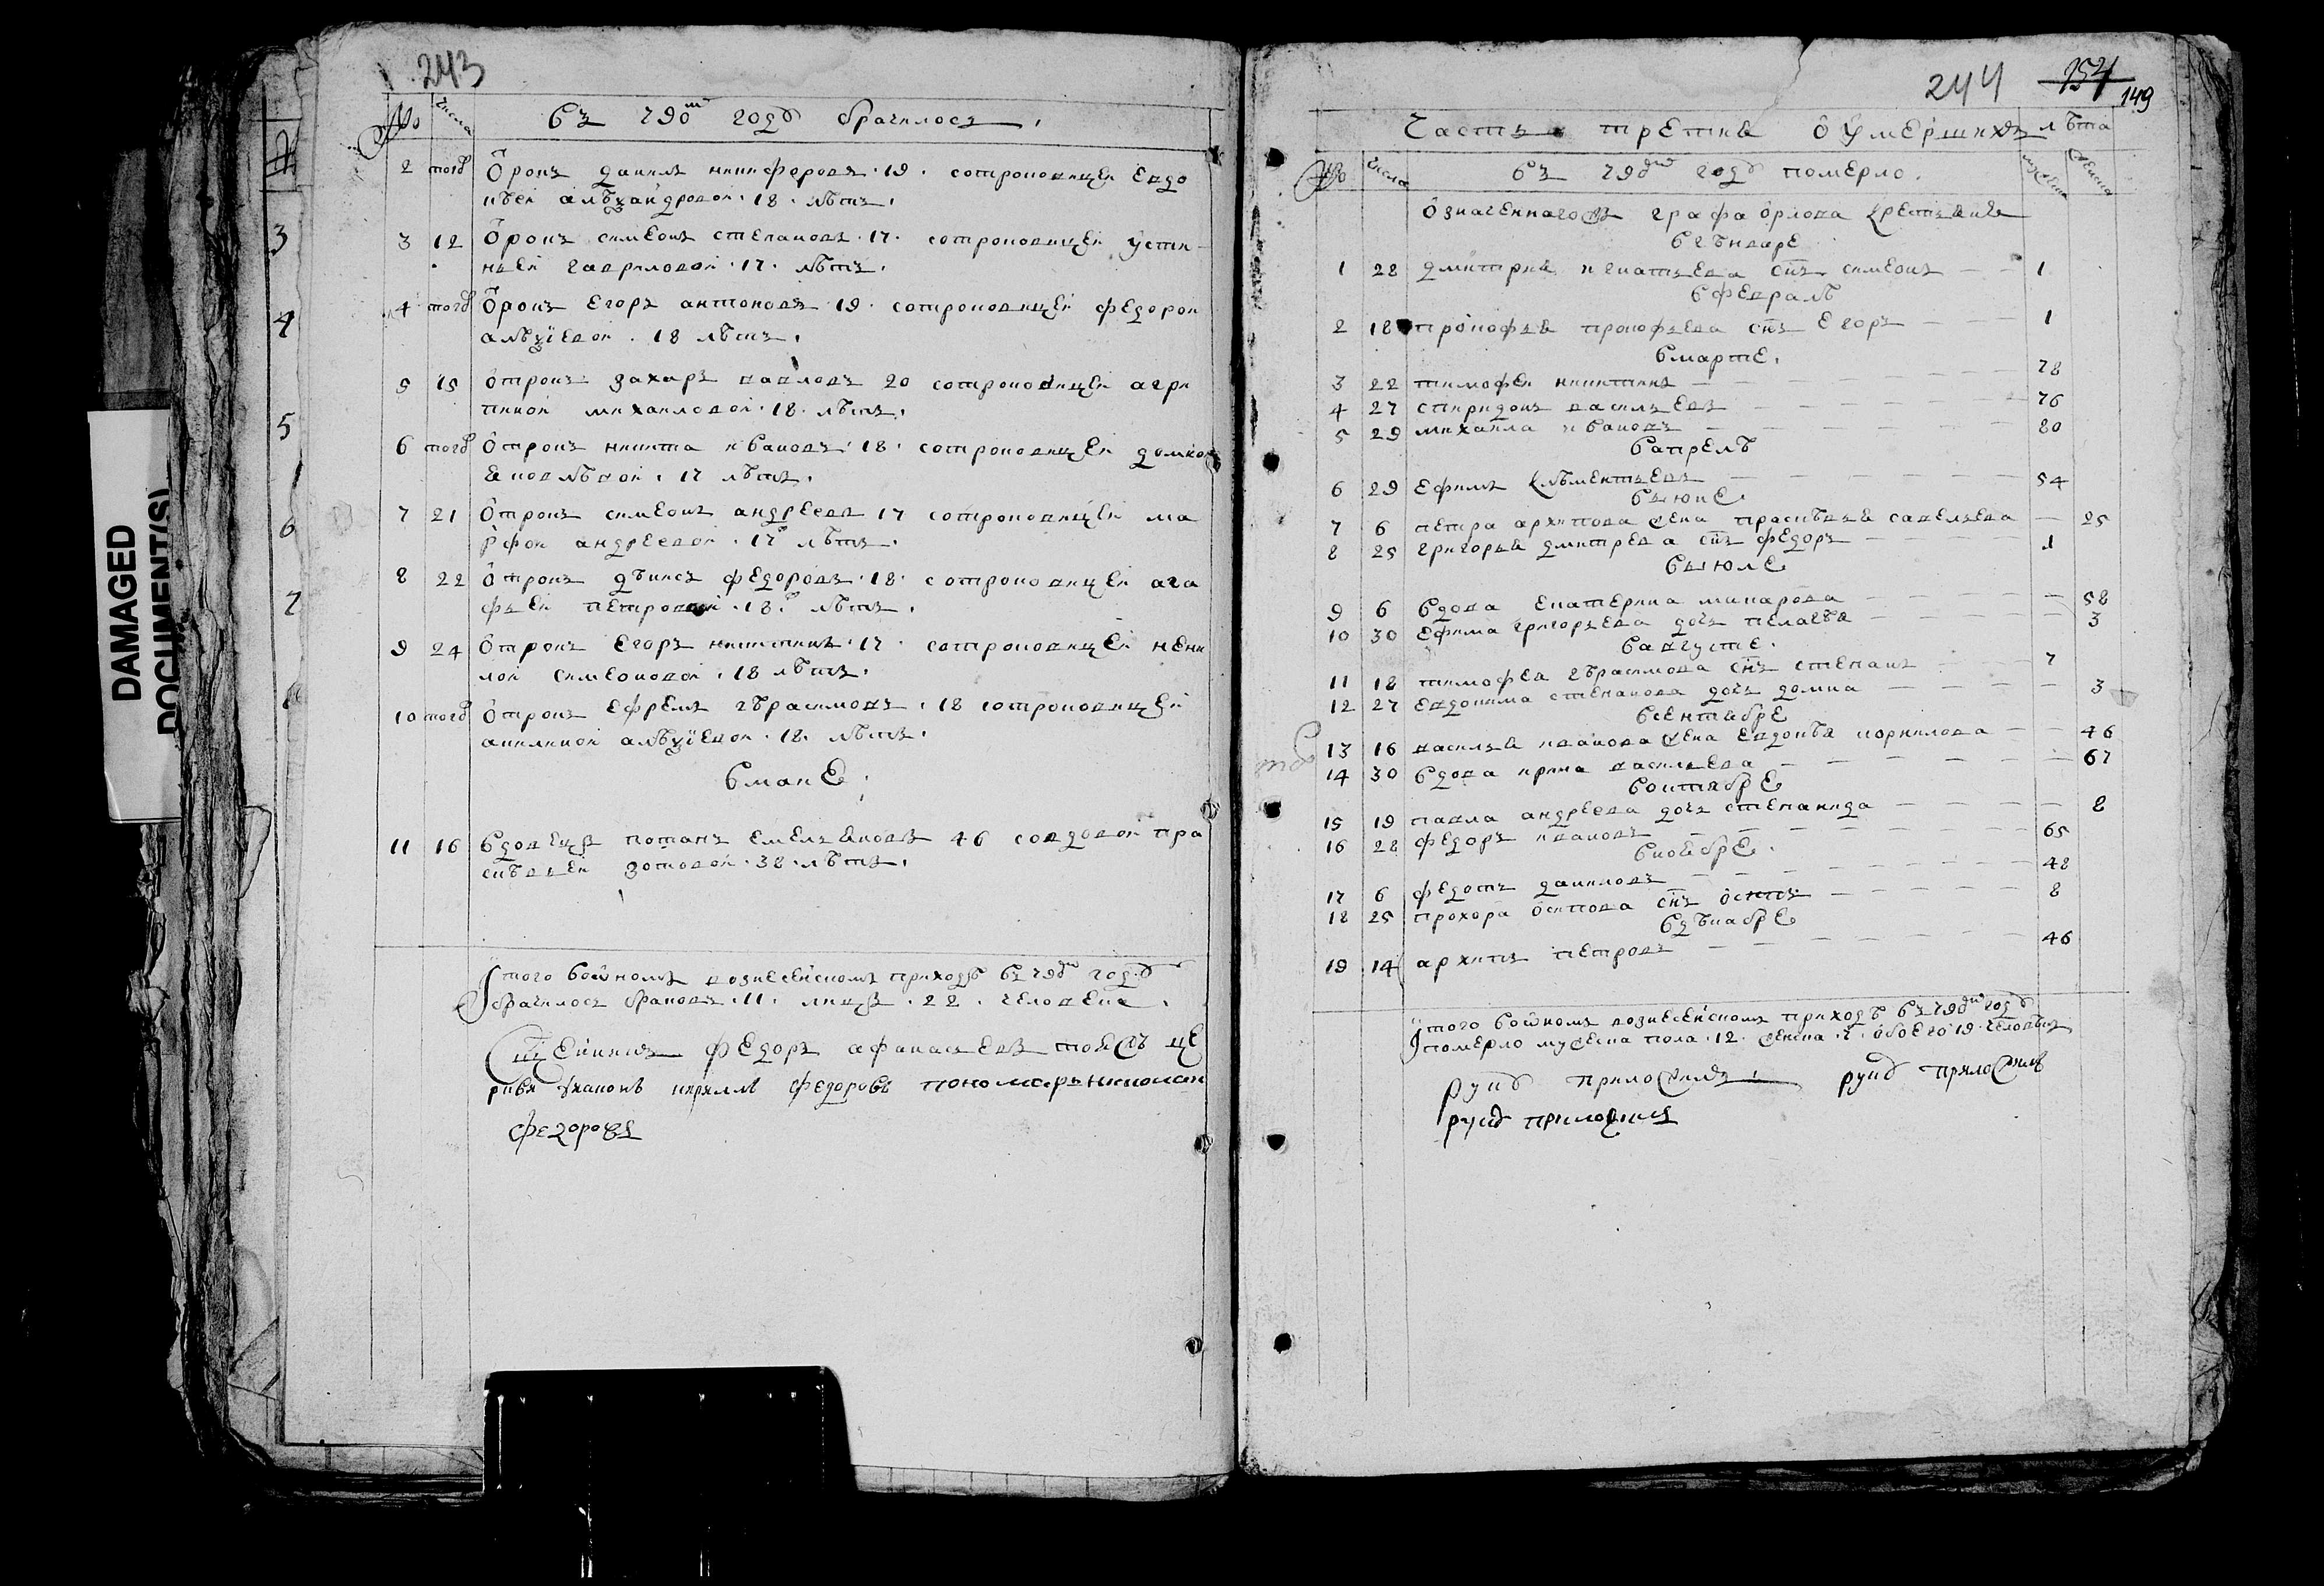 243
№ числа въ 790м годѣ брачилось.
2 тогѡ Ѻтрокъ данилъ никифоровъ 19. сотроковицеи евдо
кѣеи алѣѯандровои. 18. лѣтъ.
3 12 Ѻтрокъ симеонъ степановъ. 17. сотроковицеи ӱсти
ньеи гавриловои. 17. лѣтъ.
4 тогѡ Ѻтрокъ егоръ антоновъ 19. сотроковицеи федорои
алѣѯіевои. 18 лѣтъ.
5 15 отрокъ захаръ павловъ 20 сотроковицеи агри
пинои михаиловои. 18. лѣтъ.
6 тогѡ отрокъ никита ивановъ. 18. сотроковицеи домнои
яковлѣвои. 17 лѣтъ.
7 21 отрокъ симеонъ андреевъ 17 сотроковицеи ма
рфои андреевои. 17 лѣтъ.
8 22 отрокъ дѣнисъ федоровъ. 18. сотроковицеи ага
фьеи петровои. 18. лѣтъ.
9 24 отрокъ егоръ никитинъ. 17. сотроковицеи нени
лои симеоновои. 18 лѣтъ.
10 тогѡ отрокъ ефремъ гѣрасимовъ. 18 сотроковицеи
акилинои алѣѯіевои. 18. лѣтъ.
вмаиѣ.
11 16 вдовецъ потапъ емельяновъ 46 совдовои пра
сковьеи зотовои. 38. лѣтъ.
Итого воѡномъ вознесенскомъ приходѣ въ 790м годѣ
брачилось браковъ. 11. лицъ. 22. человека.
Сщенникъ федоръ афанасьевъ тояжъ це
ркви диаконъ кирилъ федоровъ пономарь никола
федоровъ
3
4
5
6
7
DAMAGED
DOCUMENT(S)
244 154
149
Часть третия о ӱмершихъ лѣта
№ числа въ 790м годѣ померло. мужеска женска
означеннагожъ графа орлова крестьяне
вгѣнваре
1 28 дмитрия игнатьева снъ симеонъ 1
вфевралѣ
2 18 прокофья прокофьева снъ егоръ 1
вмарте.
3 22 тимофеи никитинъ 78
4 27 спиридонъ васильевъ 76
5 29 михаила ивановъ 80
вапрелѣ
6 29 ефимъ клѣментьевъ 54
выюне.
7 6 петра архипова жена прасковья савельева 25
8 25 григорья дмитрева снъ федоръ 1
выюле
9 6 вдова екатерина макарова 58
10 30 ефима григорьева дочь пелагѣя 3
вавгусте.
11 18 тимофея гѣрасимова снъ степанъ 7
12 27 евдокима степанова дочь домна 3
всентябре
13 16 василья иванова жена евдокѣя корнилова 46
14 30 вдова ирина васильева 67
воктябре
15 19 павла андреева дочь степанида 8
16 28 федоръ ивановъ 65
вноябре.
17 6 федотъ даниловъ 48
18 25 прохора осипова снъ осипъ 8
вдѣкабре
19 14 архипъ петровъ 46
Итого воѡномъ вознесенскомъ приходѣ въ 790м годѣ
померло мужеска пола. 12. женска. 7. обоего 19. человѣкъ
рукѹ приложилъ. рукѹ приложилъ
рукѹ приложилъ